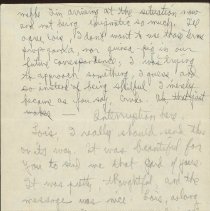 maybe I'm arriving at the situation now
and not being enigmatic so much. I'll
agree Lois, I don't want to use those terms
propaganda, nor guinea-pig in our
future correspondence, I was trying
the approach something, I guess and
so instead of being helpful, I merely
became as you say, Crude. Uh, that just
makes
(Interruption here.
Lois, I really should send this
on its way. It was beautiful for
you to send me that card of yours.
It was pretty, thoughtful and the
message was nice. Lois, as